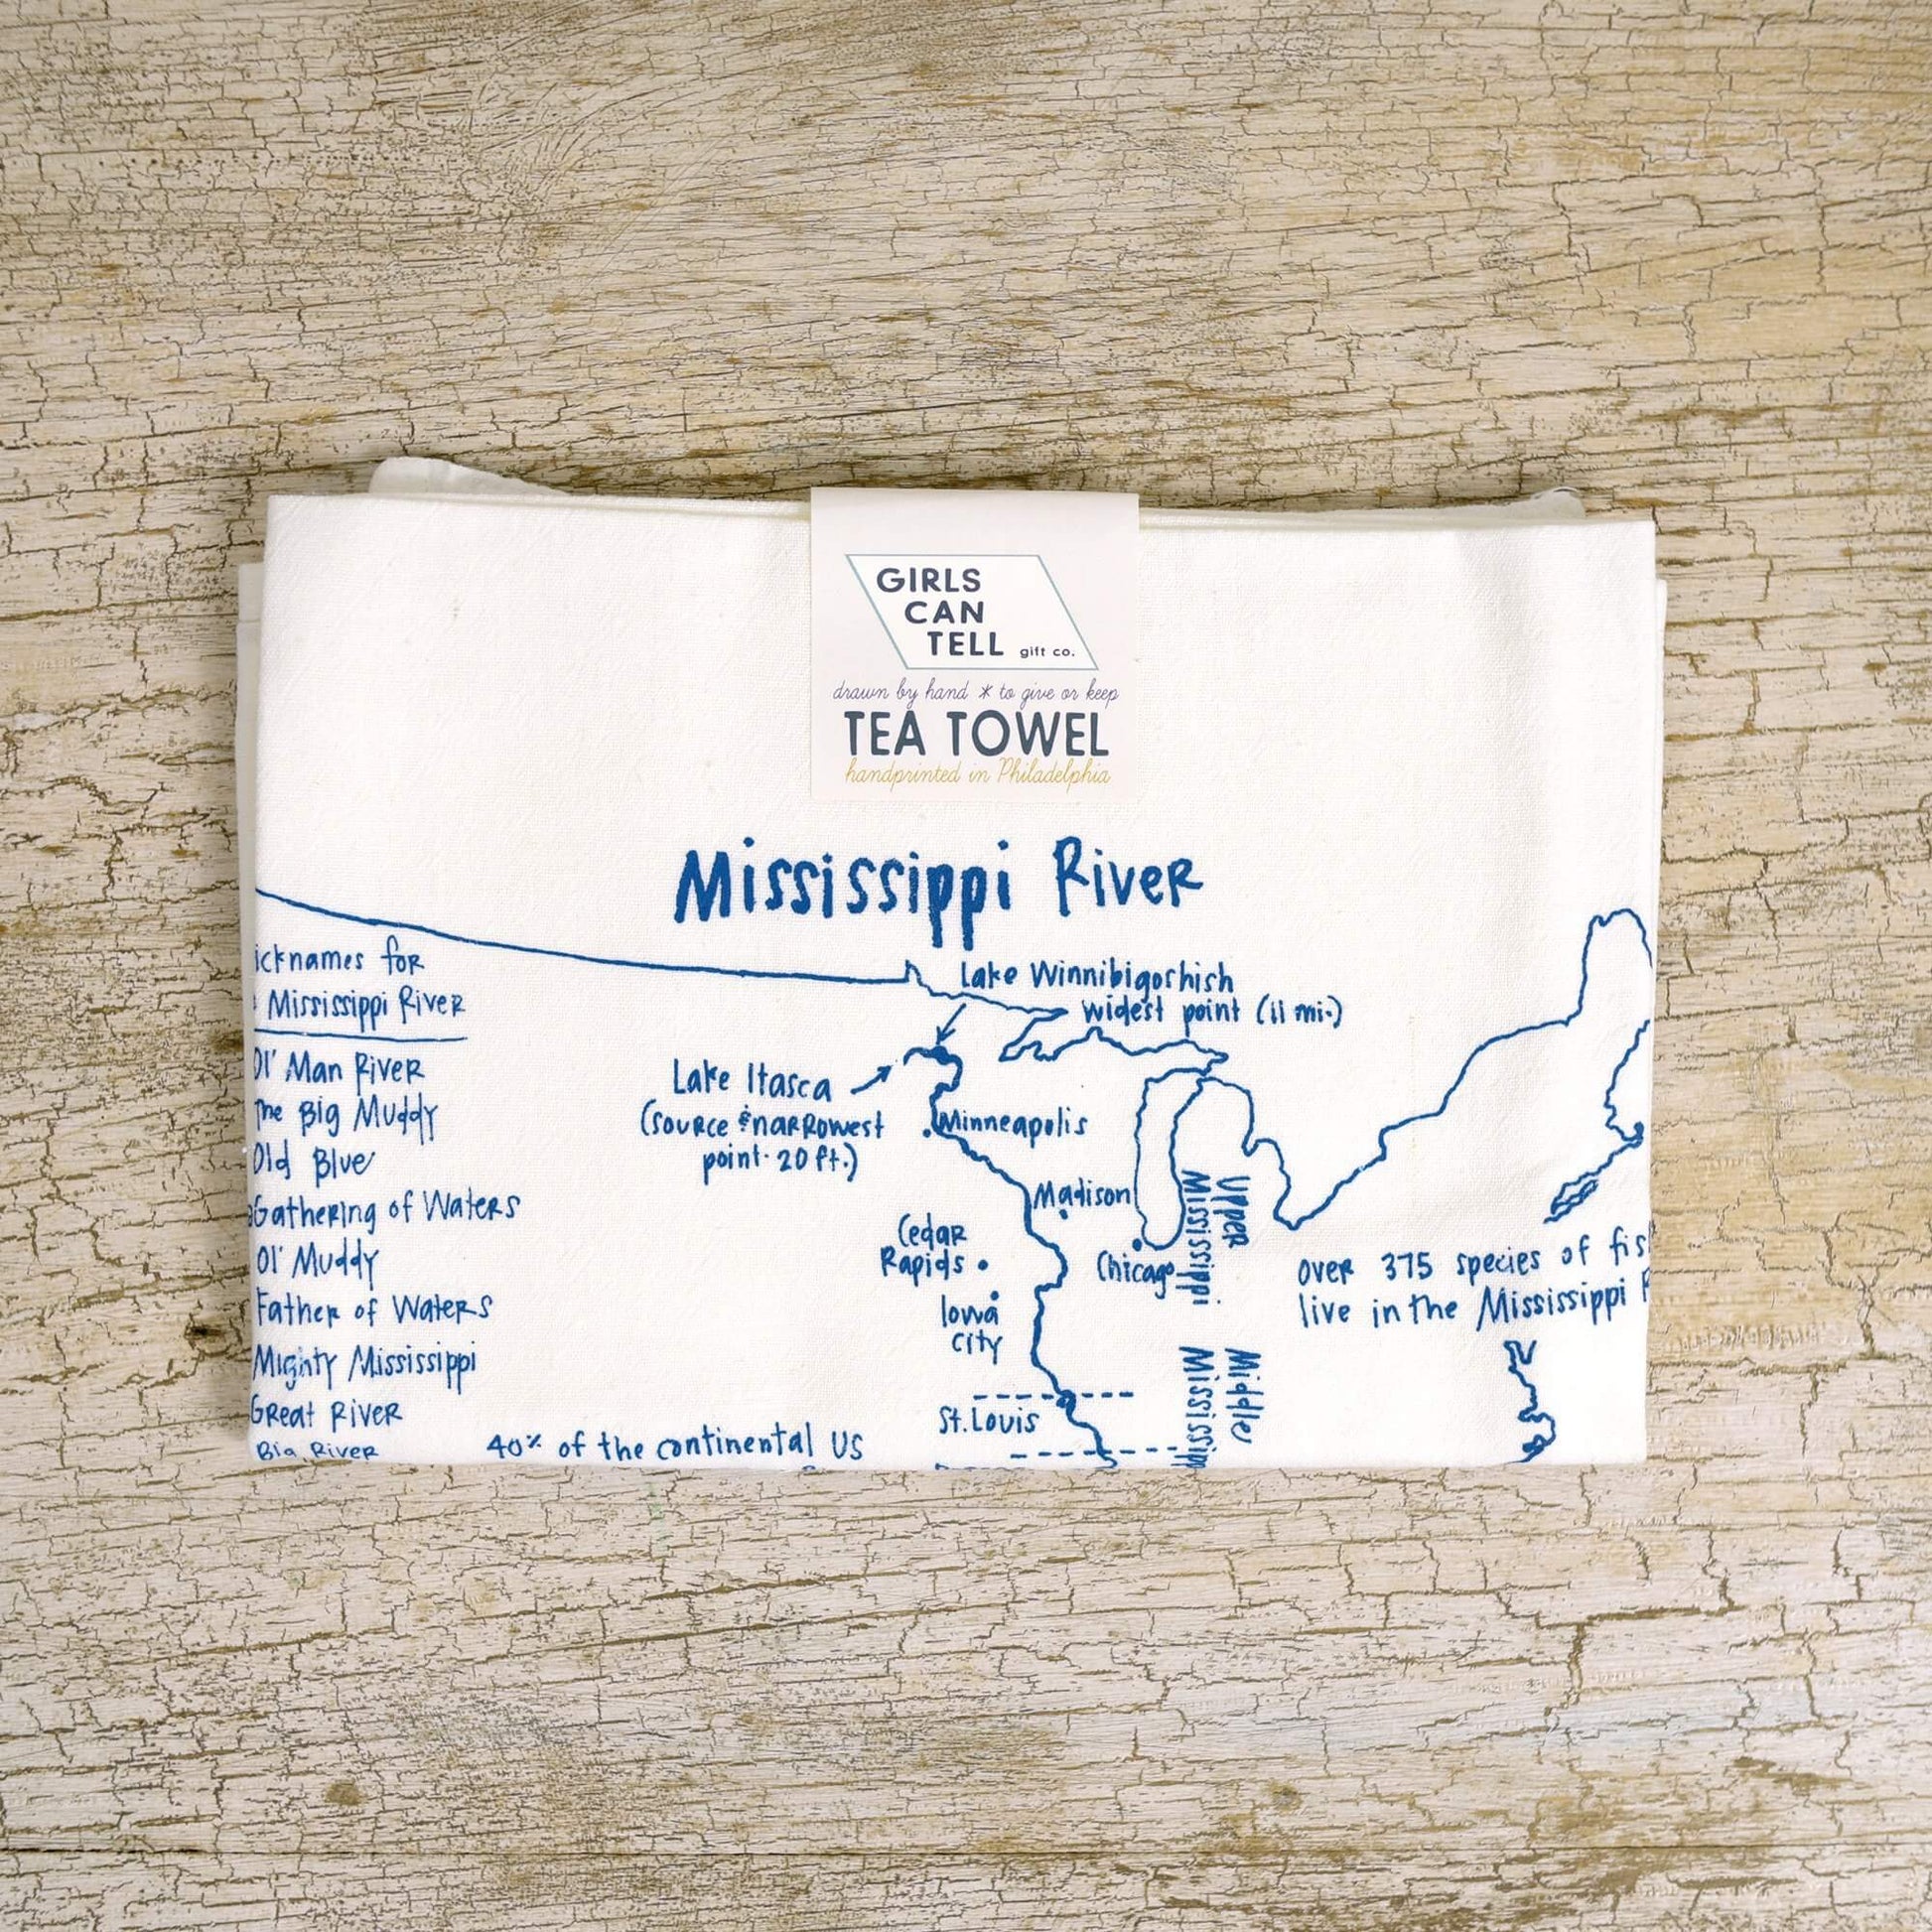 GIRLS
CAN
TELL gift co.
drawn by hand * to give or keep
TEA TOWEL
handprinted in Philadelphia
Mississippi River
icknames for
Mississippi River
Ol' Man River
The Big Muddy
Old Blue
Gathering of Waters
Ol' Muddy
Father of Waters
Mighty Mississippi
Great River
Big River
Lake Winnibigoshish
widest point (11 mi.)
Lake Itasca
(source & narrowest
point · 20 ft.)
Minneapolis
Madison
Cedar
Rapids
Chicago
Iowa
City
St. Louis
Upper
Mississippi
Middle
Mississipp
over 375 species of fis
live in the Mississippi
40% of the continental US